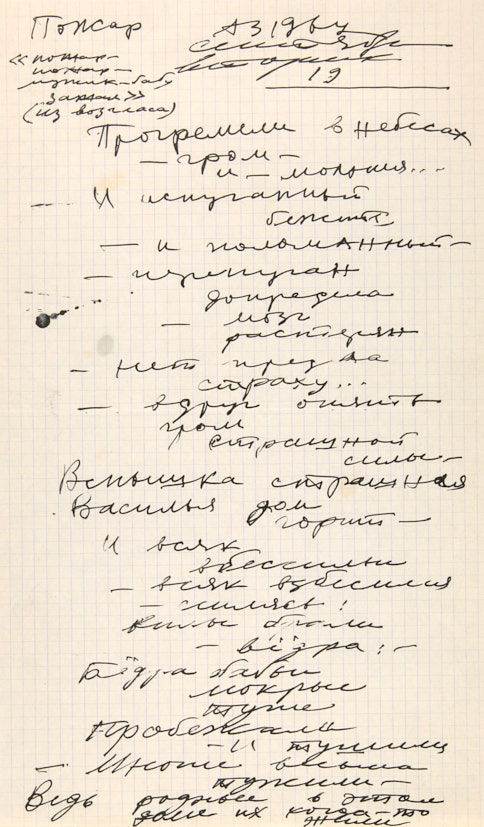 Пожар
АЗ 1964
сентябрь
вторник
19
«пожар-
пожар-
мужик-бабу
зажал»
(из возгласа)
Прогремели в небесах
— гром —
и — молния...
И испуганный
бежит
— и поломанный —
— перепуган
допредела
— мозг
растерян
— нет предела
страху...
— вдруг опять
гром
страшной
силы —
Вспышка страшная
Василья дом
горит —
И всяк
вбессильи
— всяк вбессилия
— силясь!
вилы брали
— вёдра: —
Бёдра бабьи
мокрые
туже
Пробежали
— И тушили
— Многие весьма
тужили —
Ведь родные в этом
доме их когда-то
жили